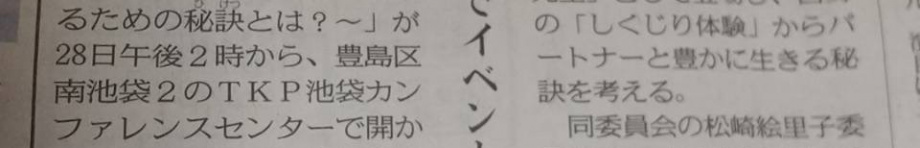 るための秘訣とは？～」が
28日午後２時から、豊島区
南池袋２のＴＫＰ池袋カン
ファレンスセンターで開か
でイベント
の「しくじり体験」からパ
ートナーと豊かに生きる秘
訣を考える。
同委員会の松崎絵里子委